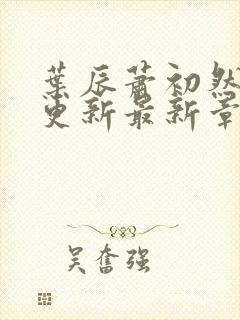 葉辰蕭初然
更新最新章
吴奮强